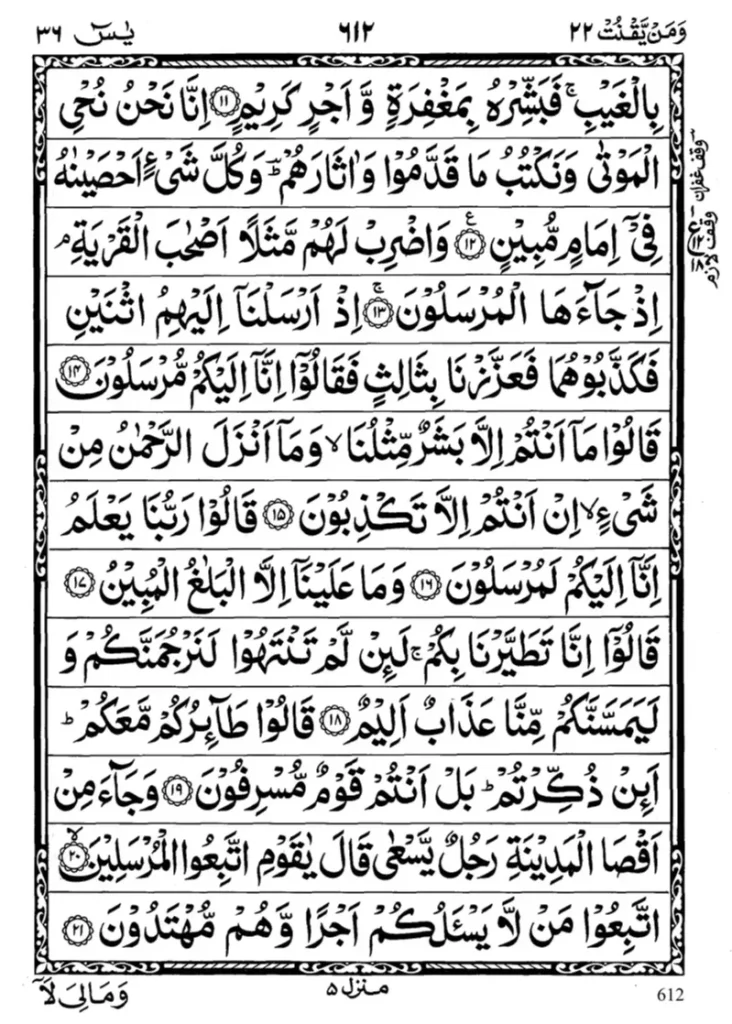 وَمَنْ يَّقْنُتْ ٢٢ ٦١٢ يٰسٓ ٣٦
بِالْغَيْبِ ۚ فَبَشِّرْهُ بِمَغْفِرَةٍ وَّ اَجْرٍ كَرِيْمٍ ﴿۱۱﴾ اِنَّا نَحْنُ نُحْيِ
الْمَوْتٰى وَنَكْتُبُ مَا قَدَّمُوْا وَاٰثَارَهُمْ ؕ وَكُلَّ شَىْءٍ اَحْصَيْنٰهُ
فِىْۤ اِمَامٍ مُّبِيْنٍ ﴿۱۲﴾ ع وَاضْرِبْ لَهُمْ مَّثَلًا اَصْحٰبَ الْقَرْيَةِ ۘ
اِذْ جَآءَهَا الْمُرْسَلُوْنَ ۚ ﴿۱۳﴾ اِذْ اَرْسَلْنَاۤ اِلَيْهِمُ اثْنَيْنِ
فَكَذَّبُوْهُمَا فَعَزَّزْنَا بِثَالِثٍ فَقَالُوْۤا اِنَّاۤ اِلَيْكُمْ مُّرْسَلُوْنَ ﴿۱۴﴾
قَالُوْا مَاۤ اَنْتُمْ اِلَّا بَشَرٌ مِّثْلُنَا ۙ وَمَاۤ اَنْزَلَ الرَّحْمٰنُ مِنْ
شَىْءٍ ۙ اِنْ اَنْتُمْ اِلَّا تَكْذِبُوْنَ ﴿۱۵﴾ قَالُوْا رَبُّنَا يَعْلَمُ
اِنَّاۤ اِلَيْكُمْ لَمُرْسَلُوْنَ ﴿۱۶﴾ وَمَا عَلَيْنَاۤ اِلَّا الْبَلٰغُ الْمُبِيْنُ ﴿۱۷﴾
قَالُوْۤا اِنَّا تَطَيَّرْنَا بِكُمْ ۚ لَئِنْ لَّمْ تَنْتَهُوْا لَنَرْجُمَنَّكُمْ وَ
لَيَمَسَّنَّكُمْ مِّنَّا عَذَابٌ اَلِيْمٌ ﴿۱۸﴾ قَالُوْا طَآئِرُكُمْ مَّعَكُمْ ؕ
اَئِنْ ذُكِّرْتُمْ ؕ بَلْ اَنْتُمْ قَوْمٌ مُّسْرِفُوْنَ ﴿۱۹﴾ وَجَآءَ مِنْ
اَقْصَا الْمَدِيْنَةِ رَجُلٌ يَّسْعٰى قَالَ يٰقَوْمِ اتَّبِعُوا الْمُرْسَلِيْنَ ۙ ﴿۲۰﴾
اتَّبِعُوْا مَنْ لَّا يَسْـَٔلُكُمْ اَجْرًا وَّهُمْ مُّهْتَدُوْنَ ﴿۲۱﴾
وقف غفران
وقف لازم
612 منزل ۵ وَمَا لِىَ لَاۤ